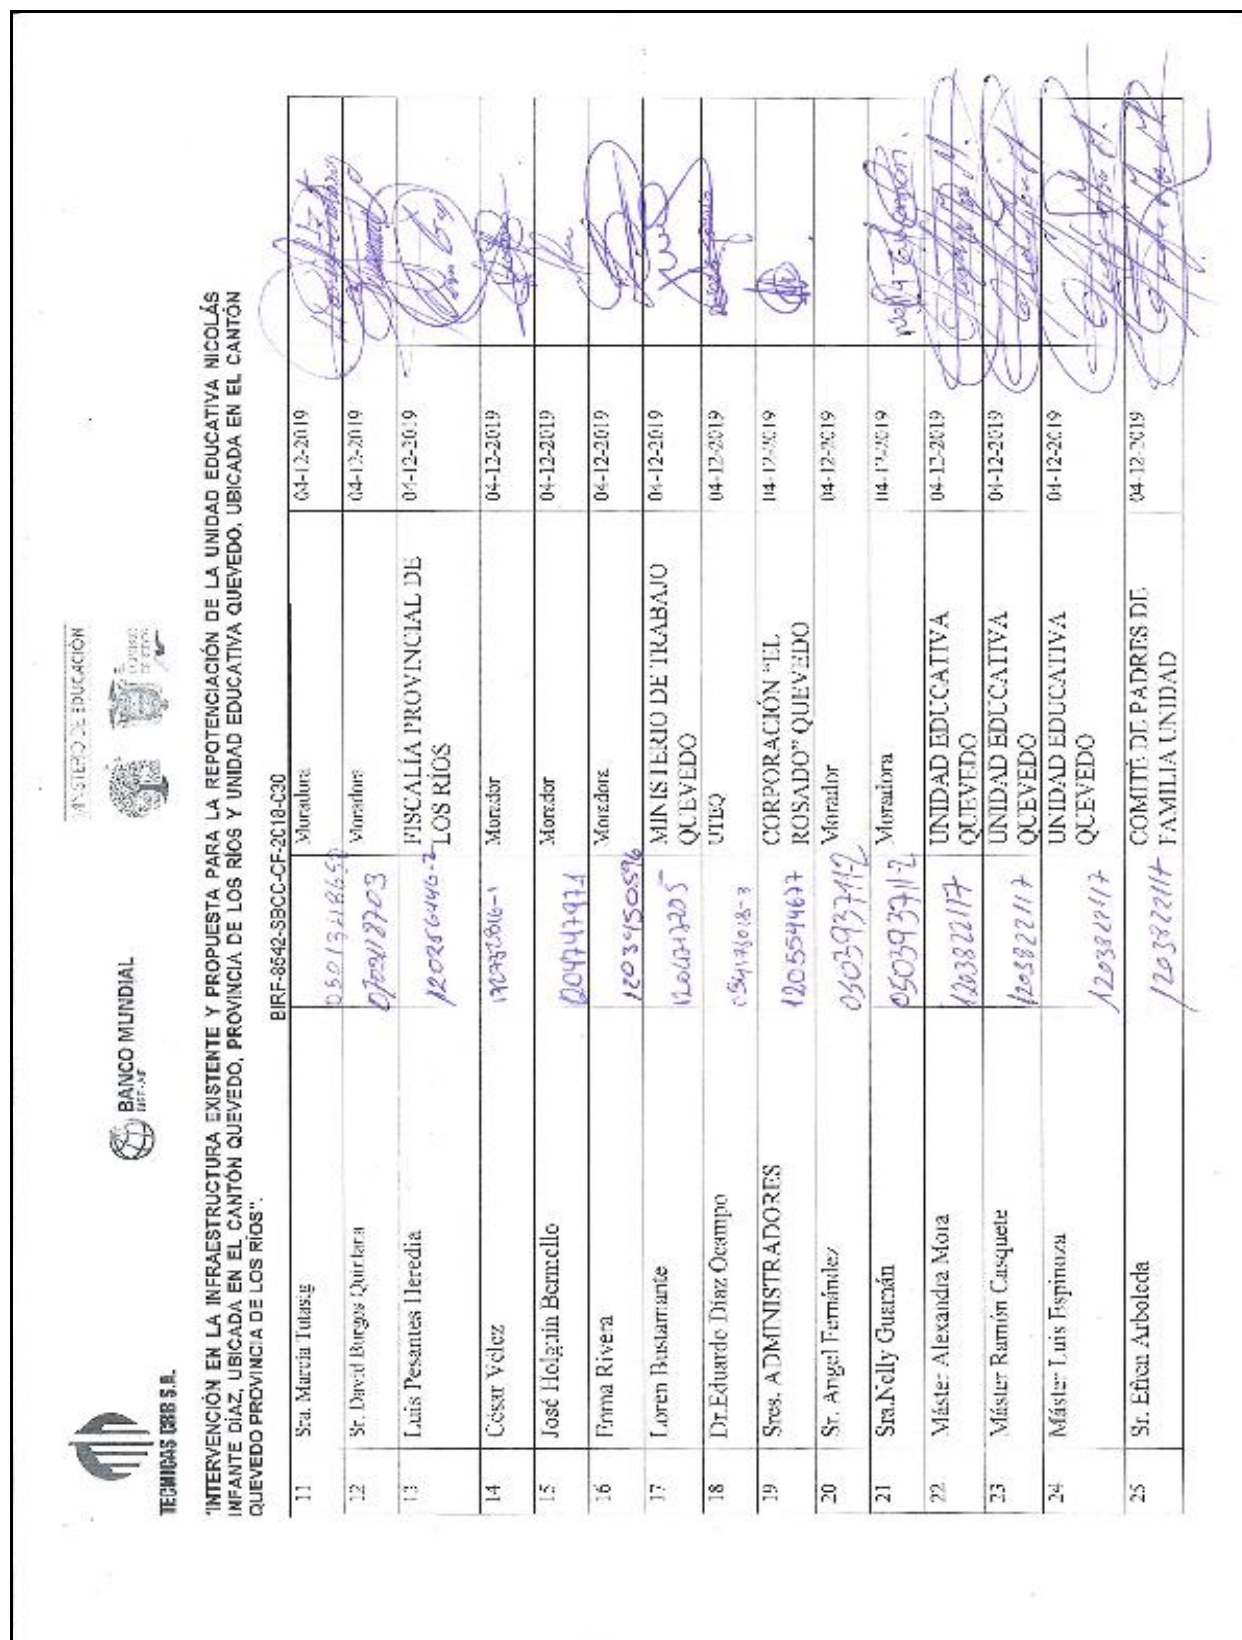 TECNICAS CRB S.A.
BANCO MUNDIAL
BIRF - AIF
MINISTERIO DE EDUCACIÓN
"INTERVENCIÓN EN LA INFRAESTRUCTURA EXISTENTE Y PROPUESTA PARA LA REPOTENCIACIÓN DE LA UNIDAD EDUCATIVA NICOLÁS
INFANTE DÍAZ, UBICADA EN EL CANTÓN QUEVEDO, PROVINCIA DE LOS RÍOS Y UNIDAD EDUCATIVA QUEVEDO, UBICADA EN EL CANTÓN
QUEVEDO PROVINCIA DE LOS RÍOS".
BIRF-8542-SBCC-CF-2018-030
11 Sra. Marcia Tutasig Moradora 04-12-2019
12 Sr. David Burgos Quintana 0702118703 Moradora 04-12-2019
13 Luis Pesantes Heredia 120256446-2 FISCALÍA PROVINCIAL DE 04-12-2019
LOS RÍOS
14 César Vélez Morador 04-12-2019
15 José Holguin Bermello Morador 04-12-2019
16 Enma Rivera 1203950596 Moradora 04-12-2019
17 Loren Bustamante MINISTERIO DE TRABAJO 04-12-2019
QUEVEDO
18 Dr.Eduardo Díaz Ocampo UTEQ 04-12-2019
19 Sres. ADMINISTRADORES 1205594677 CORPORACIÓN "EL 04-12-2019
ROSADO" QUEVEDO
20 Sr. Angel Fernández 050393711-2 Morador 04-12-2019
21 Sra.Nelly Guamán 050393711-2 Moradora 04-12-2019
22 Máster Alexandra Mora 1203822117 UNIDAD EDUCATIVA 04-12-2019
QUEVEDO
23 Máster Ramón Casquete 1203822117 UNIDAD EDUCATIVA 04-12-2019
QUEVEDO
24 Máster Luis Espinoza 1203822117 UNIDAD EDUCATIVA 04-12-2019
QUEVEDO
25 Sr. Efren Arboleda 1203822117 COMITÉ DE PADRES DE 04-12-2019
FAMILIA UNIDAD